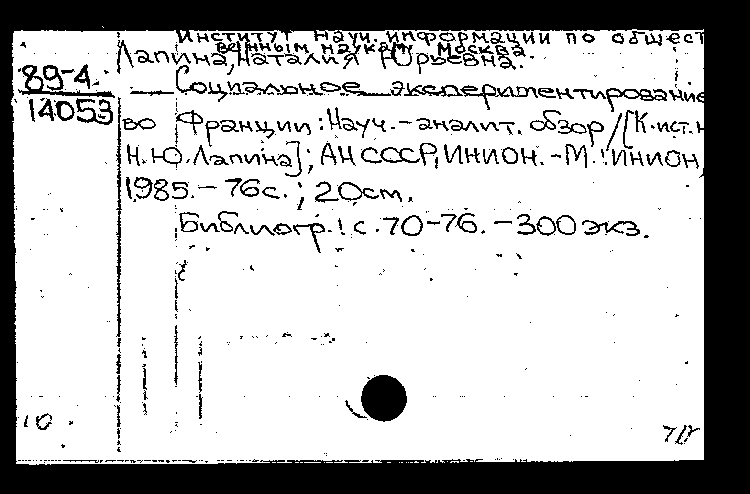 Институт науч. информации по общест
венным наукам Москва.
Лапина, Наталия Юрьевна.
89-4
14053
Социальное экспериментирование
во Франции: Науч.-аналит. обзор / [К.ист.н
Н.Ю. Лапина]; АН СССР, ИНИОН. - М.: ИНИОН,
1985. - 76с.; 20см.
Библиогр.: с. 70-76. - 300 экз.